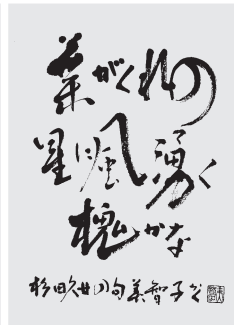 葉がくれの
星に風湧く
槐かな
杉田久女の句 美智子書